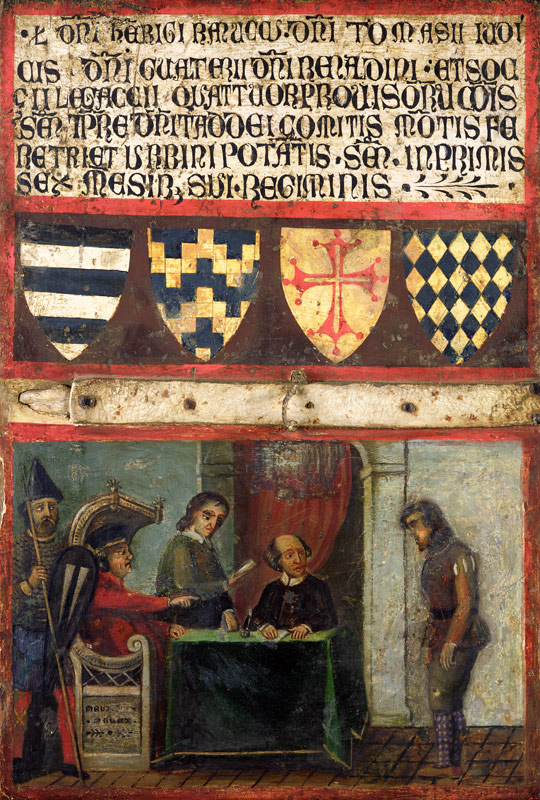 · Ł DÑI HERIGI RANUCCI · DÑI TOMASII IUDI
CIS · DÑI GUATERII DÑI RENALDINI · ET SOÇ
LEGACCII QUATTUOR PROVISORU
SEN T PRE DÑI TADDEI COMITIS MŌTIS FE
RETRI ET URBINI POTATIS · SEN · IN PRIMIS
SEX MESIB; SUI · REGIMINIS ·